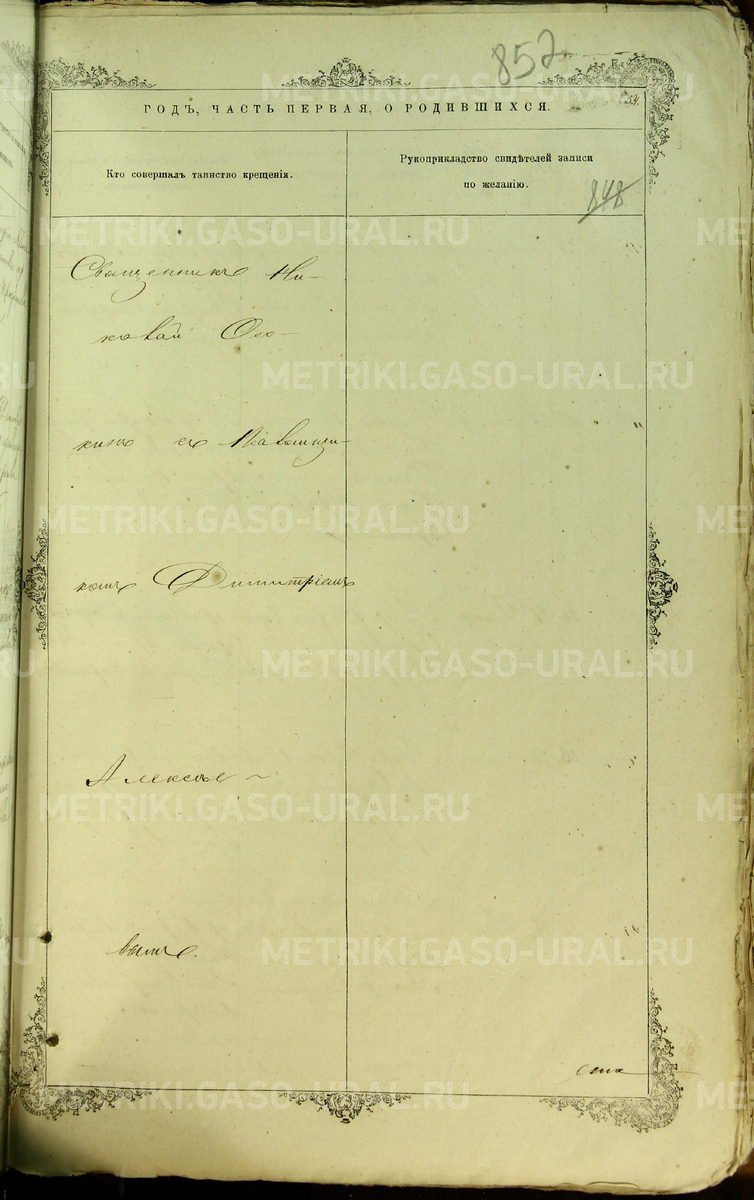 852
ГОДЪ, ЧАСТЬ ПЕРВАЯ, О РОДИВШИХСЯ.
Кто совершалъ таинство крещенія.
Рукоприкладство свидѣтелей записи
по желанію.
848
Священникъ Ни-
колай Осо-
кинъ съ Псаломщи-
комъ Димитріемъ
Алексѣе-
вымъ.
METRIKI.GASO-URAL.RU